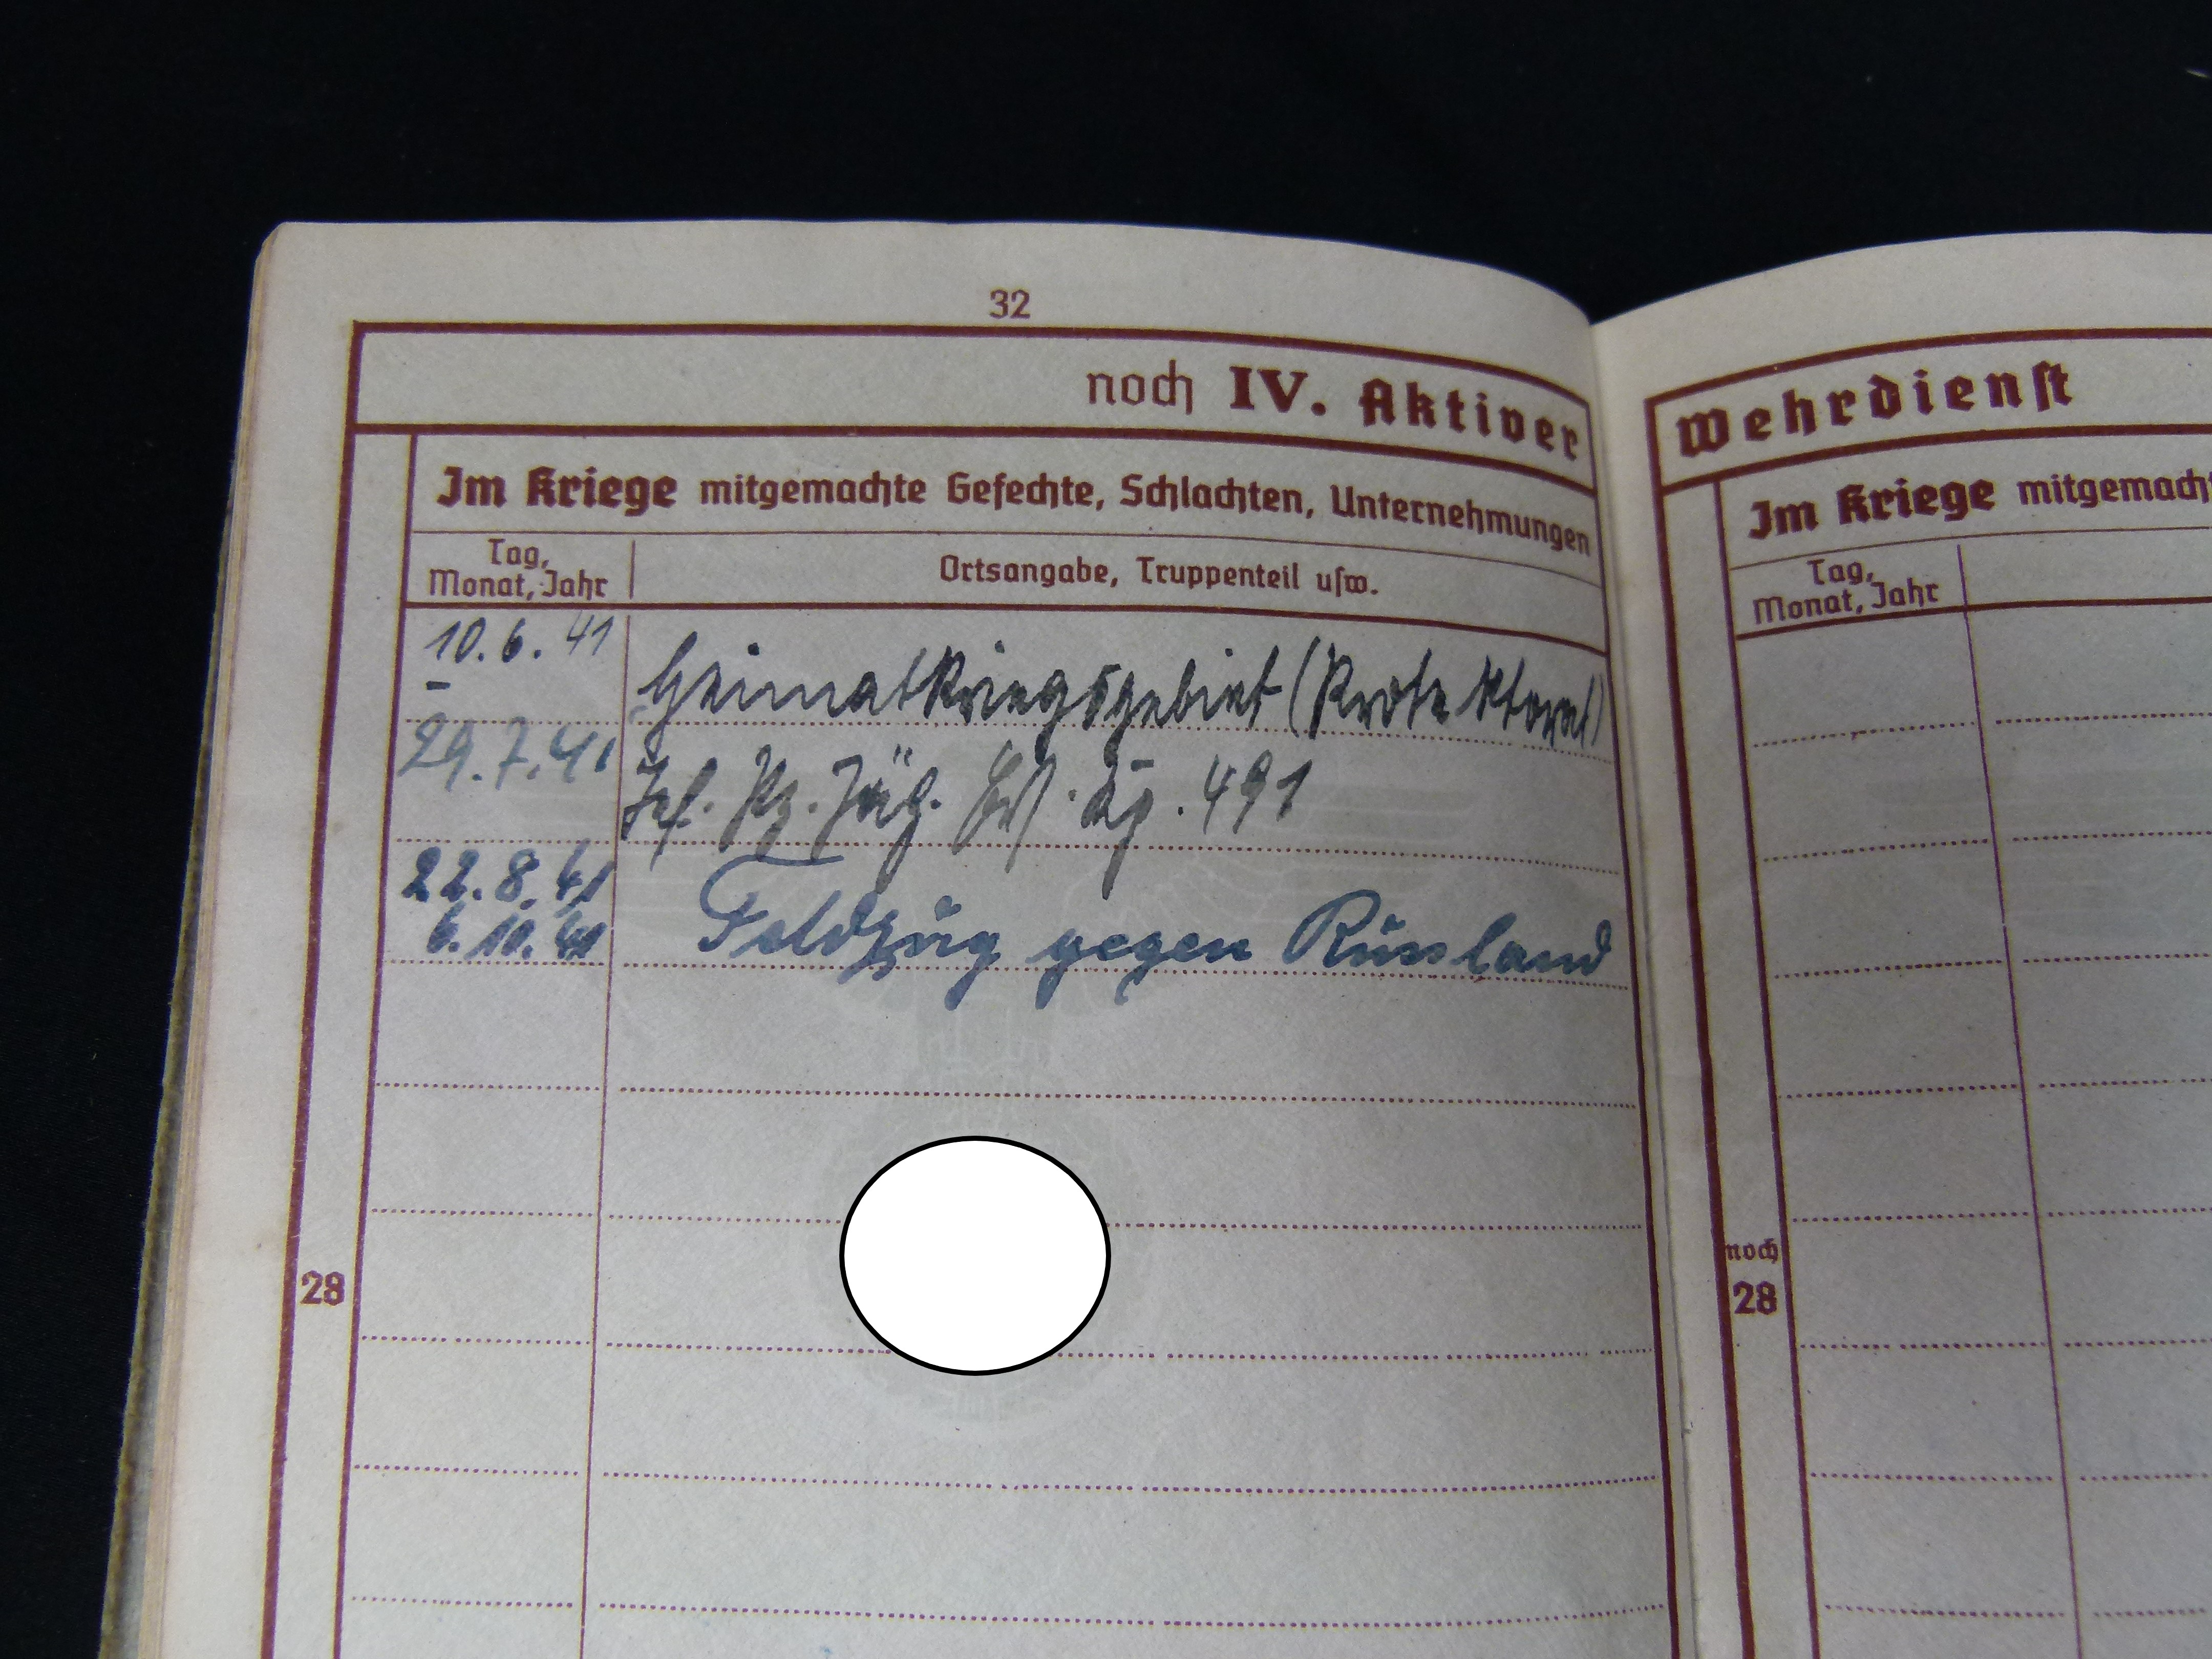 32
noch IV. Aktiver
Im Kriege mitgemachte Gefechte, Schlachten, Unternehmungen
Tag,
Monat, Jahr
Ortsangabe, Truppenteil usw.
10.6.41
-
Heimatkriegsgebiet (Protektorat)
29.7.41
Inf. Pz. Jäg. Ers. Kp. 491
22.8.41
6.10.41
Feldzug gegen Russland
28
Wehrdienst
Im Kriege mitgemach
Tag,
Monat, Jahr
noch
28